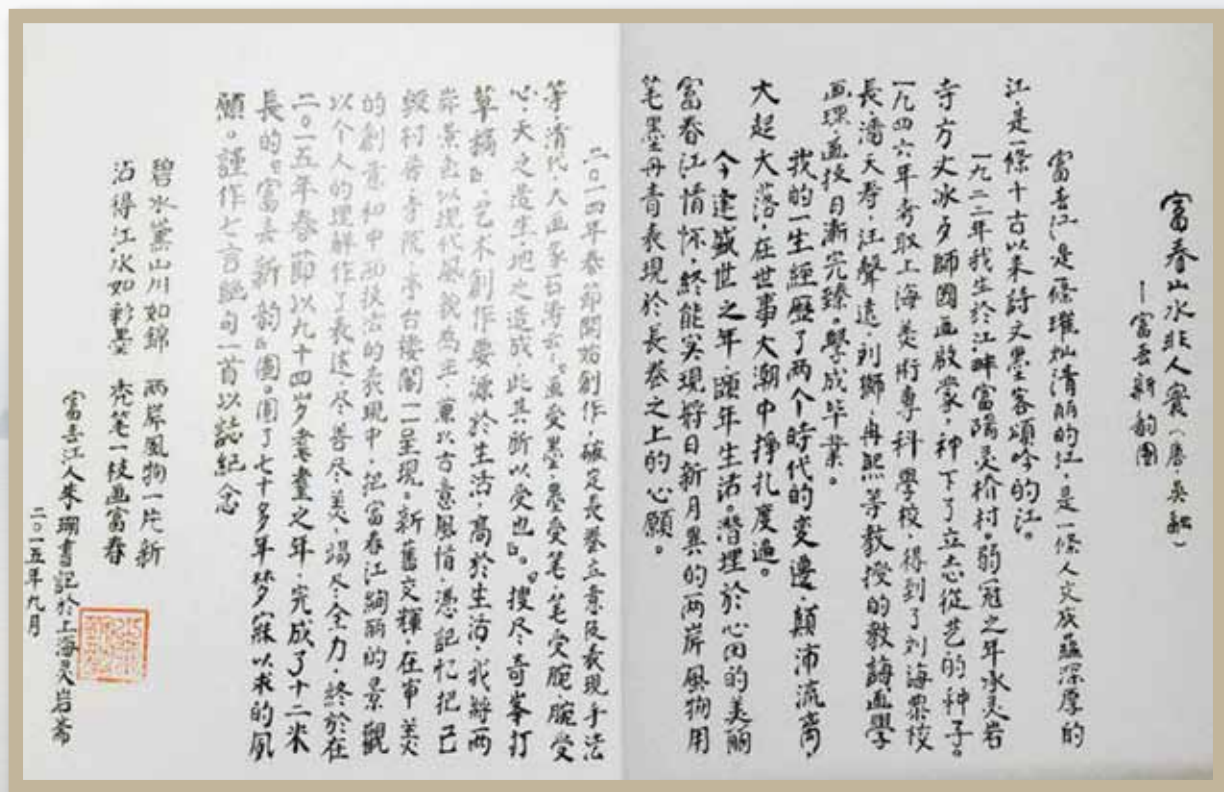 富春山水非人寰（唐·吴融）
—富春新韵图
富春江，是一條璀燦清丽的江，是一條人文底蕴深厚的
江，是一條千古以来詩文墨客頌吟的江。
一九二二年我生於江畔富陽灵桥村。弱冠之年承灵岩
寺方丈冰夕師國画啟蒙，种下了立志從艺的种子。
一九四六年考取上海美術專科學校，得到了刘海粟校
長、潘天寿、汪聲遠、刘獅、冉熙等教授的教誨，画學
画理、画技日漸完臻。學成毕業。
我的一生經歷了两个時代的变遷，顛沛流离，
大起大落，在世事大潮中掙扎度過。
今逢盛世之年，頤年生活。潛埋於心田的美丽
富春江情怀，終能实現將日新月異的两岸風物用
笔墨丹青表現於長卷之上的心願。
二〇一四年春節開始創作，確定長卷立意及表現手法
等，清代大画家石涛云：“画受墨，墨受笔，笔受腕，腕受
心，天之造生，地之造成，此其所以受也”。“搜尽奇峯打
草稿”，艺术創作要源於生活，高於生活，我將两
岸景色以現代風貌為主，兼以古意風情，憑記忆把已
毁村居、寺院、亭台楼閣一一呈現。新舊交輝，在审美
的創意和中国技法的表現中，把富春江絢丽的景觀
以个人的理解作了表述，尽善尽美，竭尽全力，終於在
二〇一五年春節以九十四岁耄耋之年，完成了十二米
長的“富春新韵”圖。圆了七十多年梦寐以求的夙
願。謹作七言絕句一首以誌紀念
碧水黛山川如錦 两岸風物一片新
沾得江水如彩墨 禿笔一枝画富春
富春江人朱瑚書記於上海灵岩斋
二〇一五年九月